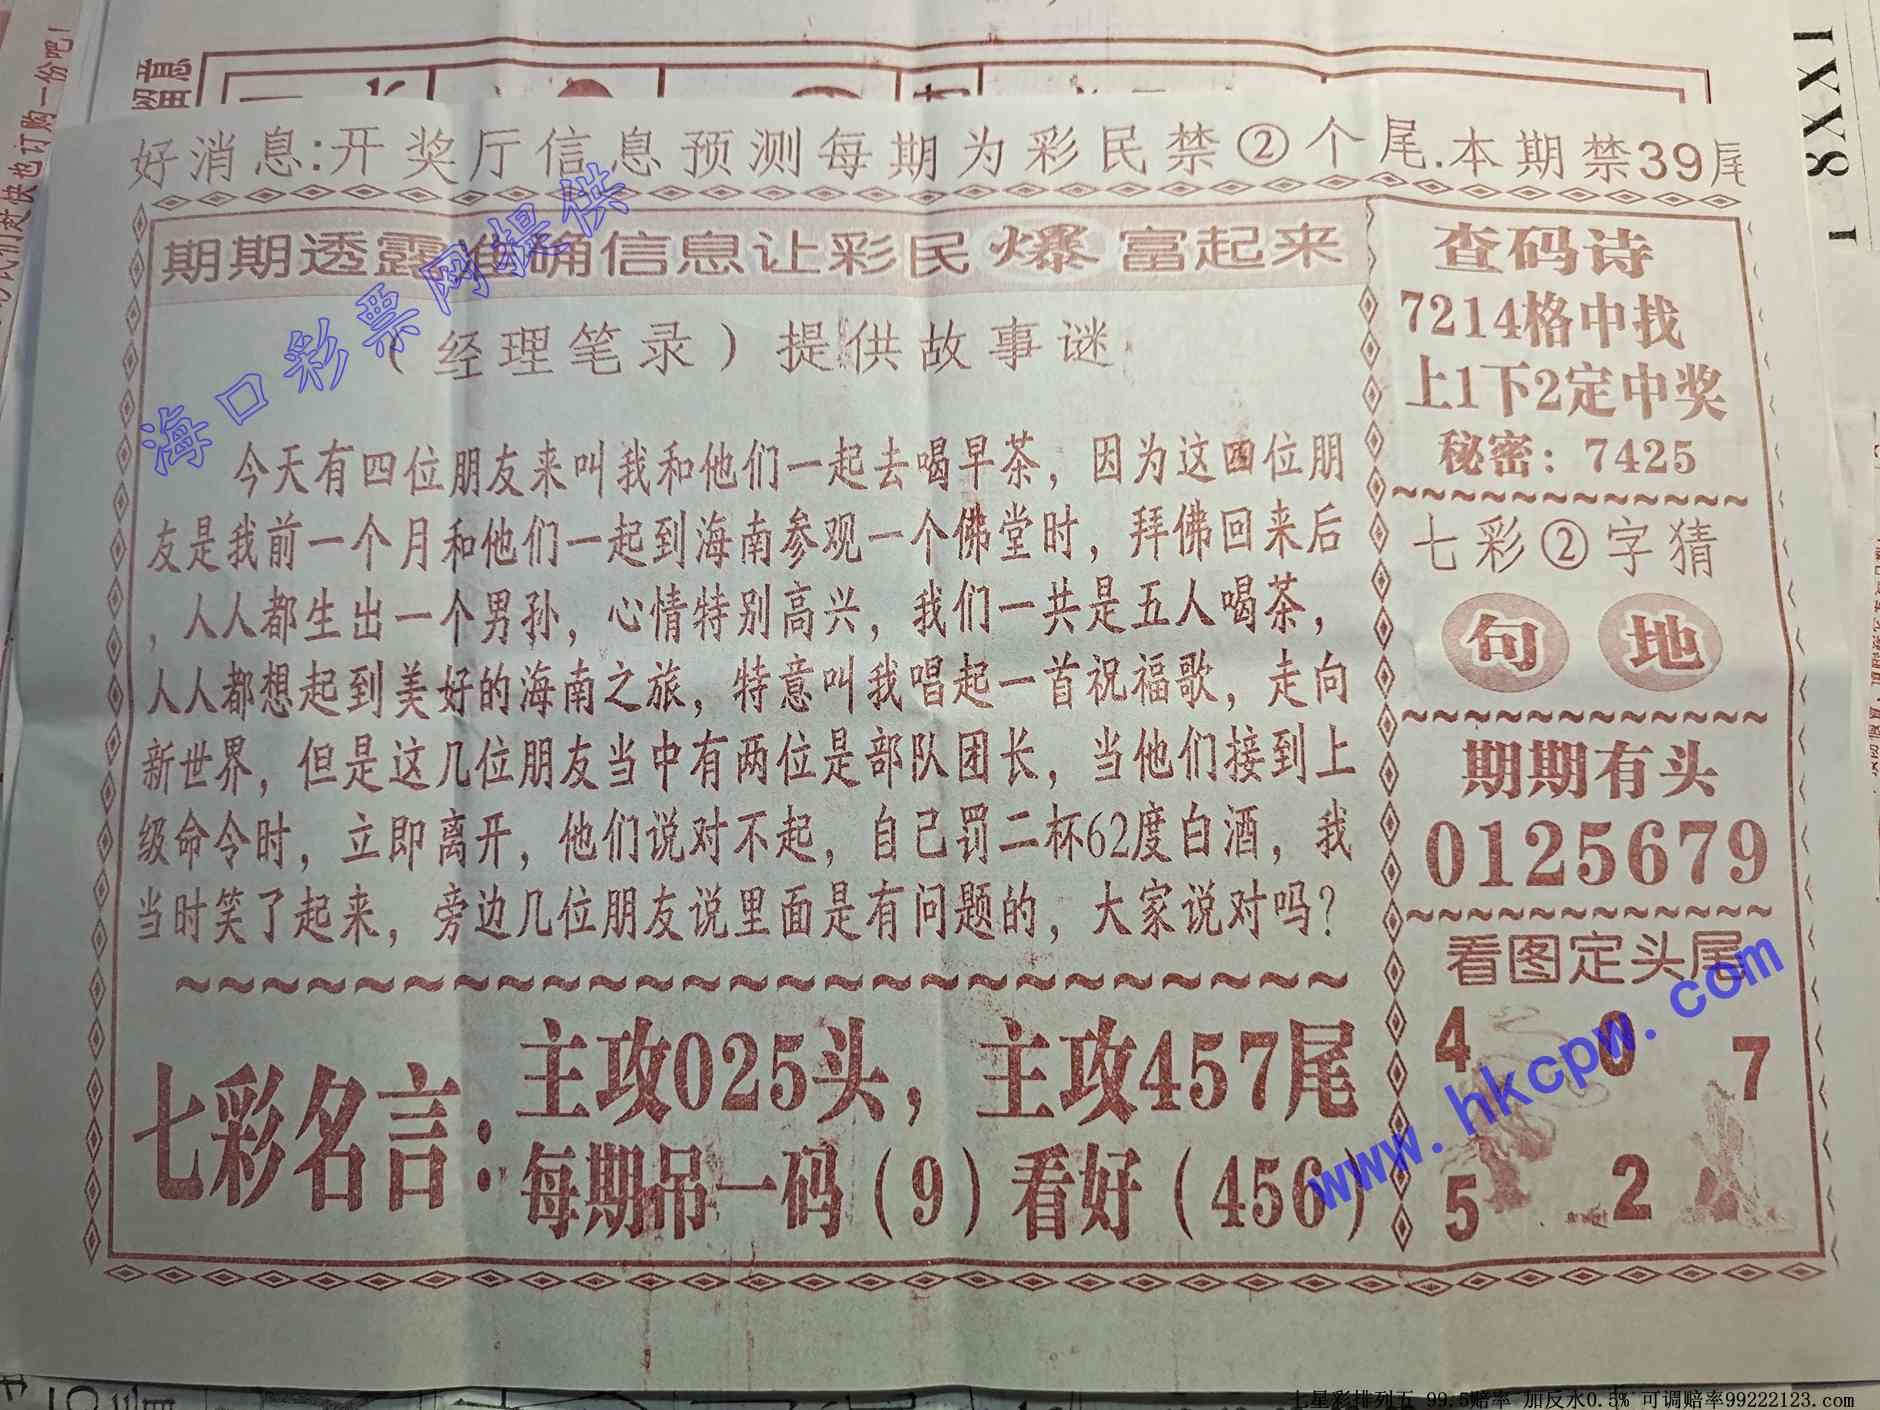 们赶快也订购一份吧!
1XX8 1
好消息:开奖厅信息预测每期为彩民禁②个尾.本期禁39尾
期期透露准确信息让彩民爆富起来
(经理笔录)提供故事谜
今天有四位朋友来叫我和他们一起去喝早茶，因为这四位朋
友是我前一个月和他们一起到海南参观一个佛堂时，拜佛回来后
，人人都生出一个男孙，心情特别高兴，我们一共是五人喝茶，
人人都想起到美好的海南之旅，特意叫我唱起一首祝福歌，走向
新世界，但是这几位朋友当中有两位是部队团长，当他们接到上
级命令时，立即离开，他们说对不起，自己罚二杯62度白酒，我
当时笑了起来，旁边几位朋友说里面是有问题的，大家说对吗？
七彩名言：
主攻025头，主攻457尾
每期吊一码(9)看好(456)
查码诗
7214格中找
上1下2定中奖
秘密：7425
七彩②字猜
句 地
期期有头
0125679
看图定头尾
4 0 7
5 2
海口彩票网提供
www.hkcpw.com
七星彩排列五 99.5赔率 加反水0.5% 可调赔率99222123.com